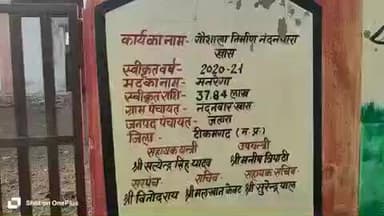 कार्य का नाम- गौशाला निर्माण नंदनवारा
खास
स्वीकृत वर्ष- 2020-21
मद का नाम- मनरेगा
स्वीकृत राशि- 37.84 लाख
ग्राम पंचायत- नंदनवारा खास
जनपद पंचायत- जतारा
जिला- टीकमगढ़ (म.प्र.)
सहायक यंत्री उपयंत्री
श्री सत्येन्द्र सिंह यादव श्री मनीष त्रिपाठी
सरपंच सचिव सहायक सचिव
श्री विनोद राय श्री मलखान केवट श्री सुरेन्द्र पाल
Shot on OnePlus